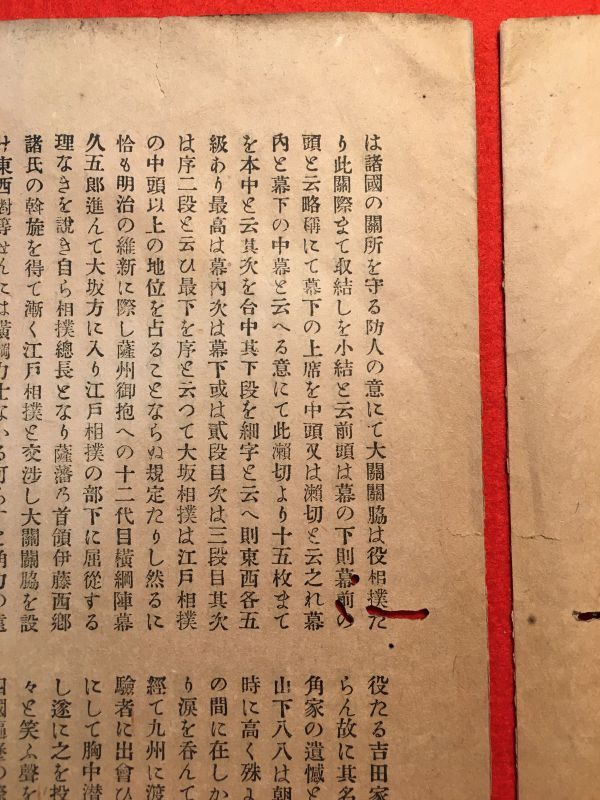 は諸國の關所を守る防人の意にて大關關脇は役相撲た
り此關際まて取結しを小結と云前頭は幕の下則幕前の
頭と云略稱にて幕下の上席を中頭又は瀬切と云之れ幕
内と幕下の中幕と云へる意にて此瀬切より十五枚まて
を本中と云其次を台中其下段を細字と云へ則東西各五
級あり最高は幕內次は幕下或は貳段目次は三段目其次
は序二段と云ひ最下を序と云つて大坂相撲は江戸相撲
の中頭以上の地位を占ることならぬ規定たりし然るに
恰も明治の維新に際し薩州御抱への十二代目横綱陣幕
久五郎進んて大坂方に入り江戸相撲の部下に屈從する
理なきを說き自ら相撲總長となり薩藩の首領伊藤西郷
諸氏の斡旋を得て漸く江戸相撲と交涉し大關關脇を設
け東西對等
役たる吉田家
らん故に其名
角家の遺憾と
山下八八は朝
時に高く殊よ
の間に在しか
り涙を呑んて
經て九州に渡
驗者に出會ひ
にして胸中潜
し遂に之を投
々と笑ふ聲を
四國